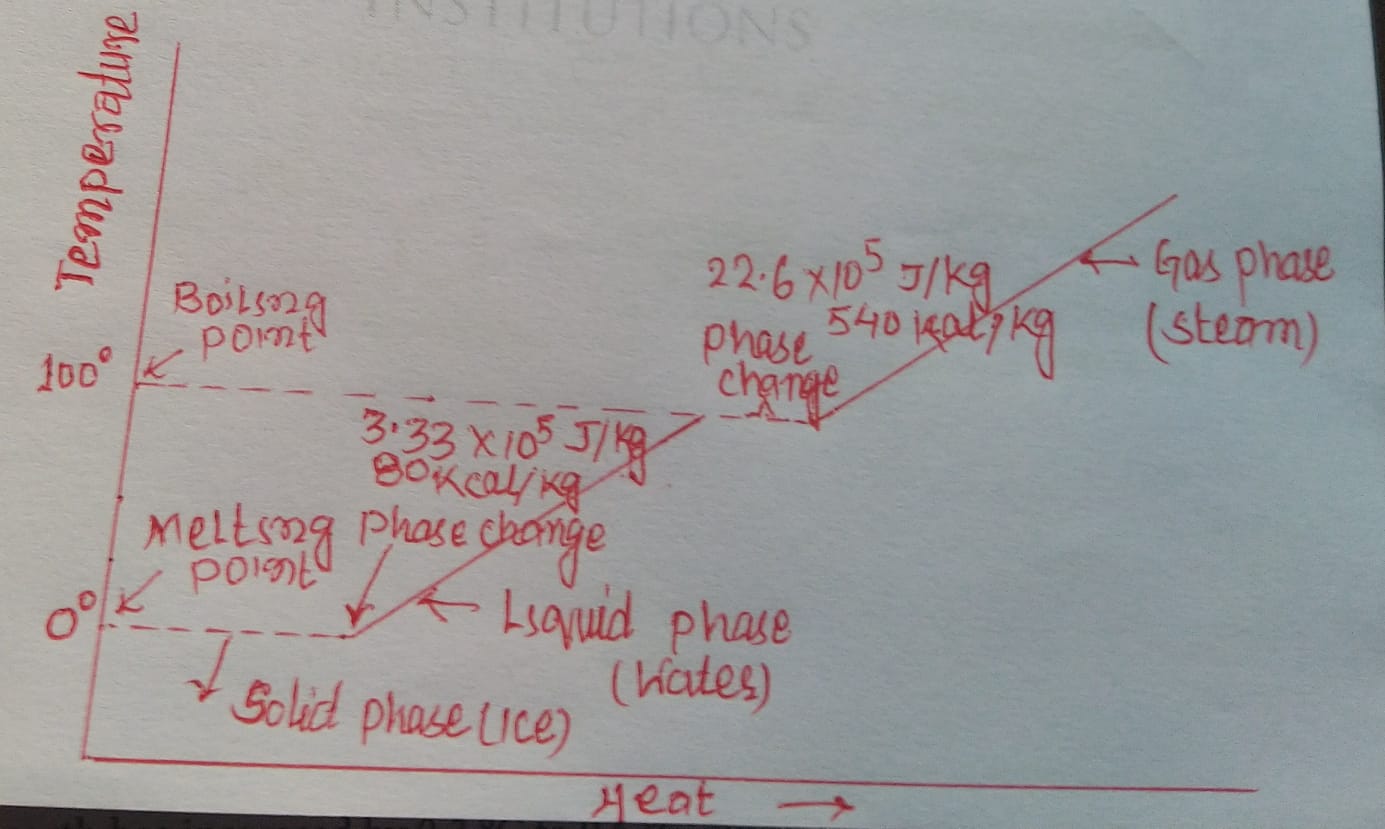 INSTITUTIONS
Temperature
22.6 × 10⁵ J/kg
540 kcal/kg
Gas phase
(steam)
Boiling
point
phase
change
100°
3.33 × 10⁵ J/kg
80 Kcal/kg
Melting
point
phase change
0°
Liquid phase
(Water)
Solid phase (Ice)
Heat →